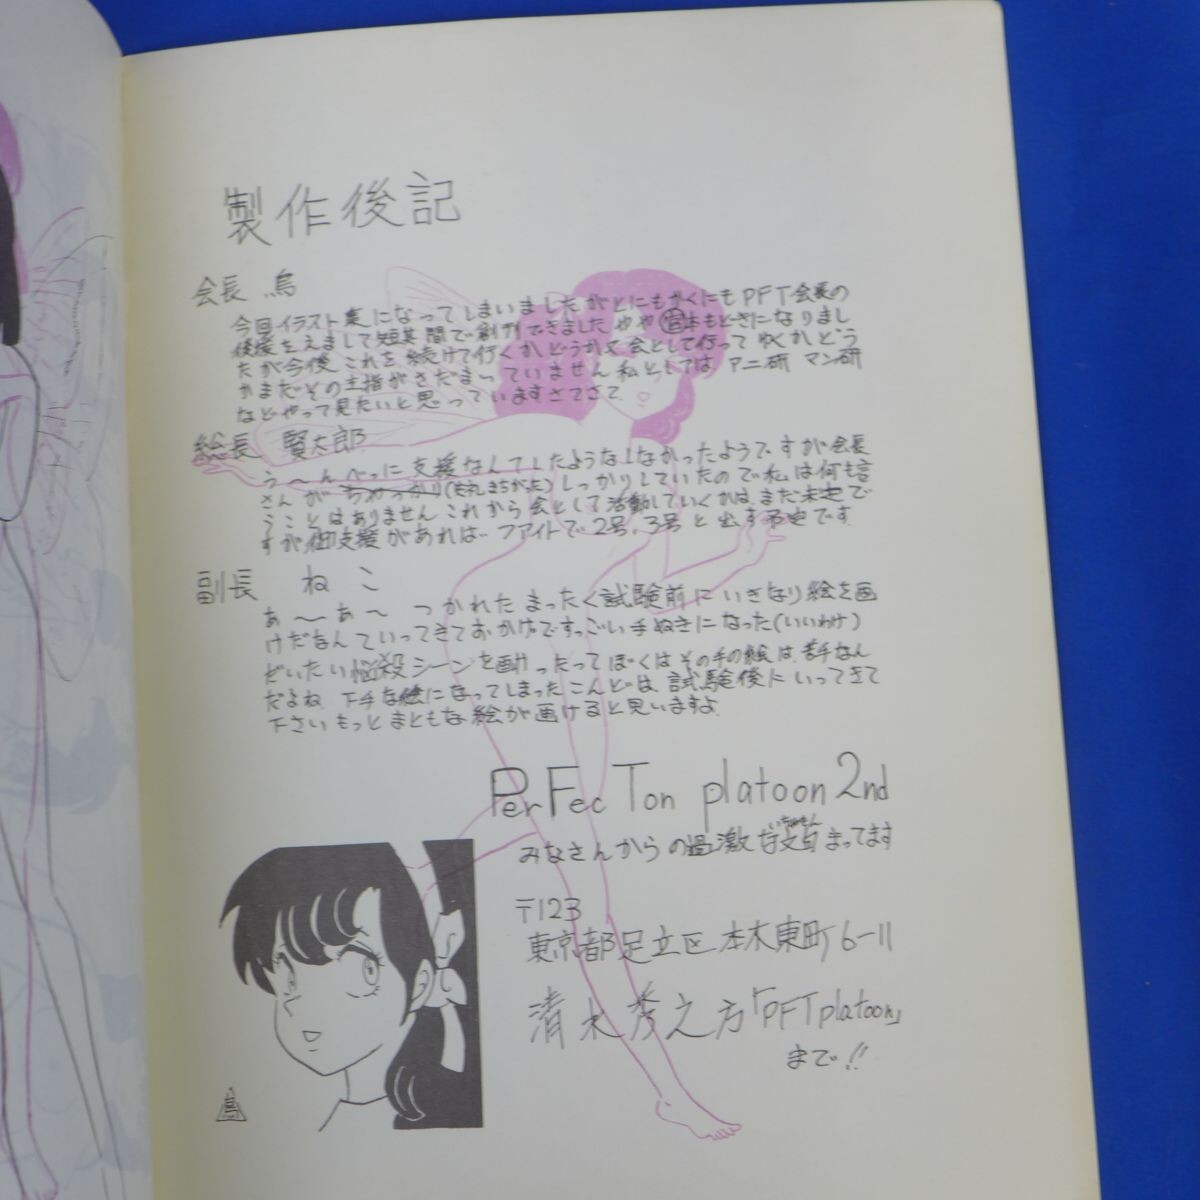 製作後記
会長 烏
今回イラスト集になってしまいましたがとにもかくにもPFT会長の
後援をえまして短期間で創刊できましたやや宮本もどきになりまし
たが今後これを続けて行くかどうか又会として行ってゆくかどう
かまだその主指がさだまっていません私としてはアニ研マン研
などやって見たいと思っていますさてさて
総長 賢太郎
う〜んべつに支援なんてしたようなしなかったようですが会長
さんがちゃっかり(もれまちがえ)しっかりしていたので私は何も言
うことはありませんこれから会として活動していくかは、まだ未定で
すが御支援があれば…ファイトで2号、3号と出す予定です
副長 ねこ
あ〜あ〜つかれたまったく試験前にいきなり絵を画
けだなんていってきておかげですっごい手ぬきになった(いいわけ)
だいたい悩殺シーンを画けったってぼくはその手の絵は、苦手なん
だよね、下手な絵になってしまったこんどは、試験後にいってきて
下さいもっとまともな絵が画けると思いますよ
PerFecTon platoon 2nd
みなさんからの過激な文句まってます
〒123
東京都足立区本木東町6-11
清水秀之方「PFTplatoon」
まで!!